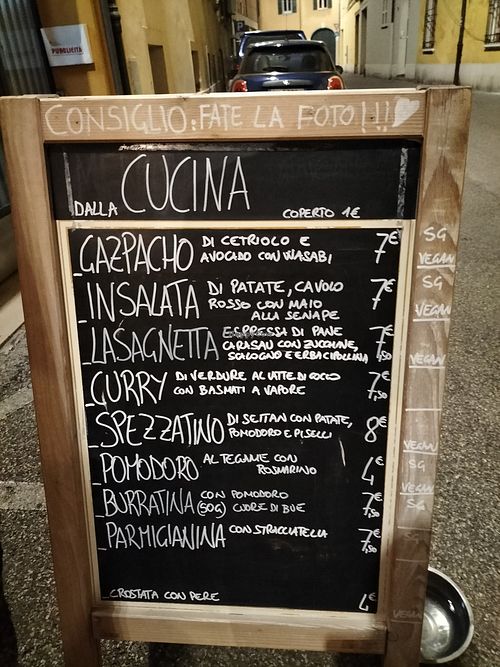 PUBBLICITÀ
CONSIGLIO: FATE LA FOTO!!!
DALLA CUCINA COPERTO 1€
GAZPACHO DI CETRIOLO E 7€ SG
AVOCADO CON WASABI VEGAN
INSALATA DI PATATE, CAVOLO 7€ SG
ROSSO CON MAIO VEGAN
ALLA SENAPE
LASAGNETTA ESPRESSA DI PANE 7€
CARASAU CON ZUCCHINE, 7,50
SOLOGNO E ERBA CIPOLLINA VEGAN
CURRY DI VERDURE AL LATTE DI COCCO 7€
CON BASMATI A VAPORE 7,50
SPEZZATINO DI SEITAN CON PATATE, 8€
POMODORO E PISELLI VEGAN
POMODORO AL TEGAME CON 4€ SG
ROSMARINO VEGAN
BURRATINA CON POMODORO 7€ SG
(50G) CUORE DI BUE 7,50
PARMIGIANINA CON STRACCIATELLA 7€
7,50
CROSTATA CON PERE 4€ VEGAN